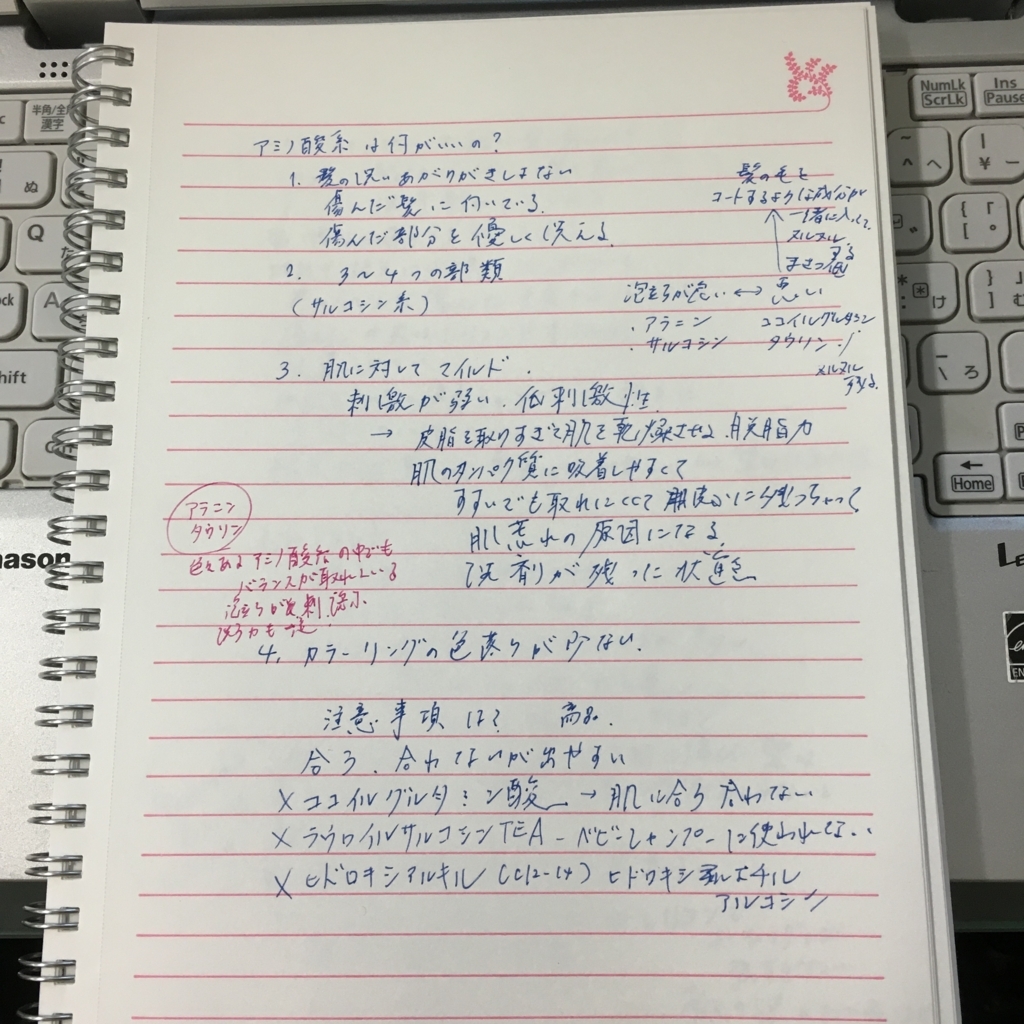 アミノ酸系は何がいいの?
1. 髪の洗いあがりがきしまない
傷んだ髪に付いている
傷んだ部分を優しく洗える
2. 3〜4つの部類
(サルコシン系)
髪の毛を
コートするような成分が
一緒に入ってて、
ヌルヌル
する
まさつ低
泡立ちが良い ↔ 悪い
・アラニン ココイルグルタミン
・サルコシン タウリン
ヌルヌル
する
3. 肌に対してマイルド.
刺激が弱い.低刺激性
→ 皮脂を取りすぎて肌を乾燥させる.脱脂力
肌のタンパク質に吸着しやすくて
すすいでも取れにくくて 残っちゃって
肌荒れの原因になる
洗剤が残った状態
アラニン
タウリン
色々あるアミノ酸系の中でも
バランスが取れている
泡立ちが良
4. カラーリングの色落ちが少ない.
注意事項は? 高い.
合う、合わないが出やすい
× ココイルグルタミン酸 → 肌に合う合わない
× ラウロイルサルコシンTEA - ベビーシャンプーに使われてない
× ヒドロキシアルキル (C12-14) ヒドロキシエチル
アルコシン
半角/全角
漢字
ぬ
Q
A
Shift
NumLk
ScrLk
Ins
Pause
け
ろ
Home